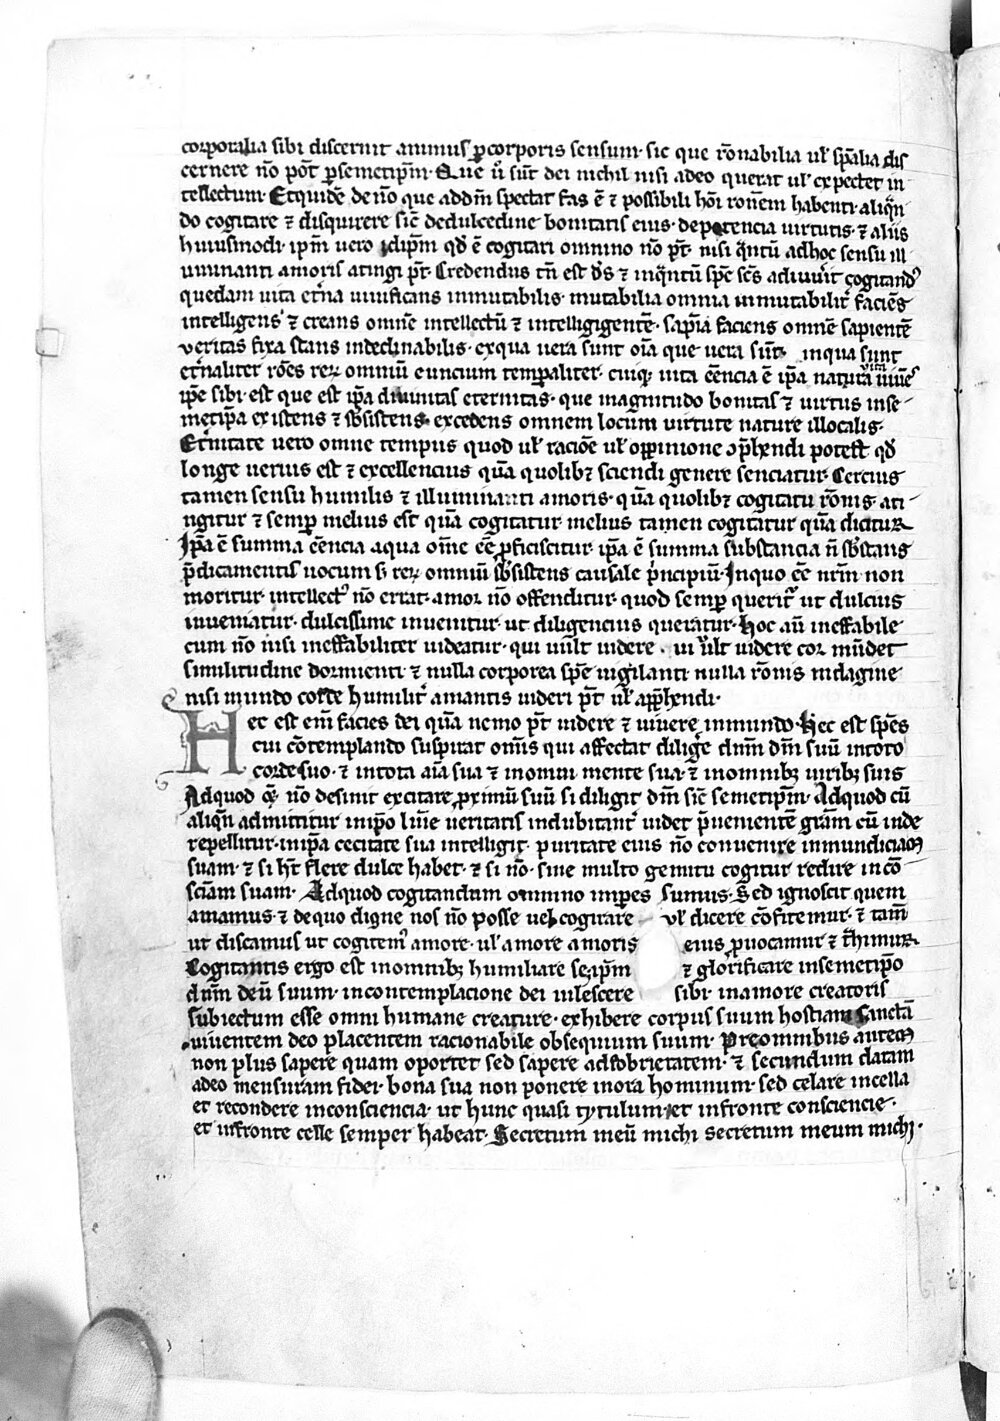 corporalia sibi discernit animus ꝑ corporis sensum· sic que rōnabilia ul̓ sp̄alia dis
cernere nō pōt ꝑ semetip̄m· Que ū sūt dei nichil nisi adeo querat ul̓ expectet in
tellectum· Et quidē de nō que addn̄m spectat fas ē ⁊ possibili hōi ronēm habenti· aliqn̄
do cogitare ⁊ disquirere sic̄ dedulcedine bonitatis eius· depotencia uirtutis· ⁊ aliis
huiusmodi· ip̄m uero idip̄m qd̓ ē cogitari omnino nō pt̄· nisi qͣntū adhoc sensu ill
uminanti amoris atingi pt̄· Credendus tn̄ est d̄s ⁊ inqͣntū sp̄c sc̄s adiuuīt cogitand᷒
quedam uita et̓na uiuificans inmutabilis· mutabilia omnia inmutabilit̓ faciēs
intelligens ⁊ creans omnē intellectū ⁊ intelligigentē· sap̄ia faciens omnē sapientē
ueritas fixa stans indeclinabilis· exqua uera sunt oīa que uera sūt· inqua sunt
et̓naliter rōes reꝝ omniū euncium temp̄aliter· cuiqꝫ uita eēncia ē ip̄a natura uita uiuēs
ip̄e sibi· est que est ip̄a diuinitas eternitas· que magnitudo bonitas ⁊ uirtus inse
metip̄a existens ⁊ sb̄sistens· excedens omnem locum uirtute nature illocalis·
Et̓nitate uero omne tempus quod ul̓ racióe ul̓ oppinione app̄hendi potest qd̓
longe uerius est ⁊ excellencius quā quolibꝫ sciendi genere senciatur· Cercius
tamen sensu humilis ⁊ illuminanti amoris· quā quolibꝫ cogitatu rōnis· ati
ngitur ⁊ semꝑ melius est quā cogitatur melius tamen cogitatur quā dicitur
Ip̄a ē summa eēncia aqua om̄e eē ꝓficiscitur ip̄a ē summa substancia n̄ sb̄stans
p̄dicamentis uocum s̄ reꝝ omniū sb̄sistens causale p̓ncipiū· Inquo eē nrm̄ non
moritur· intellectꝰ nō errat· amor nō offenditur· quod semꝑ querit̓ ut dulcius
inueniatur· dulcissime inuenitur· ut diligencius queratur· Hoc aū ineffabile
cum nō nisi ineffabiliter uideatur· qui uult uidere· ui uult uidere cor mūdet
similitudine dormienti· ⁊ nulla corporea sp̄e uigilanti nulla rōnis indagine
nisi mundo corde humilit̓ amantis uideri pt̄ ul̓ app̄hendi·
Hec est eīn facies dei quā nemo pt̄ uidere ⁊ uiuere inmundo· Hec est sp̄es
cui cōtemplando suspirat om̄is qui affectat diligere dn̄m dm̄ suū intoto
corde suo· ⁊ intota aīa sua ⁊ inomni mente sua· ⁊ inomnibꝫ uiribꝫ suis
Adquod qͥ nō desinit excitare ꝓximū suū si diligit dm̄ sic̄ semetip̄m· Adquod cū
aliqn̄ admittitur inip̄o lūīe ueritatis indubitant̓ uidet p̄uenientē gr̄am cū inde
repellitur· inip̄a cecitate sua intelligit· puritate eius nō conuenire inmundiciam
suam· ⁊ si h̄t flere dulce habet· ⁊ si nō· sine multo gemitu cogitur redire incō
sc̄iam suam· Adquod cogitandum omnino inpes sumus· Sed ignoscit quem
amamus· ⁊ dequo digne nos nō posse uel cogitare ul̓ dicere cōfitemur· ⁊ tam̄
ut discamus ut cogitemꝰ amore· ul̓ amore amoris eius ꝓuocamur ⁊ t̓himur·
Cogitantis ergo est inomnibꝫ humiliare seip̄m ⁊ glorificare insemetip̄o
dn̄m deū suum· incontemplacione dei uilescere sibi· inamore creatoris
subiectum esse omni humane creature· exhibere corpus suum hostiam sanctā
uiuentem deo placentem racionabile obsequium suum· Preomnibus autem
non plus sapere quam oportet sed sapere adsobrietatem· ⁊ secundum datam
adeo mensuram fidei· bona sua non ponere inora hominum· sed celare incella
et recondere inconsciencia· ut hunc quasi tytulum et infronte consciencie·
et infronte celle semper habeat· Secretum meū michi secretum meum michi·